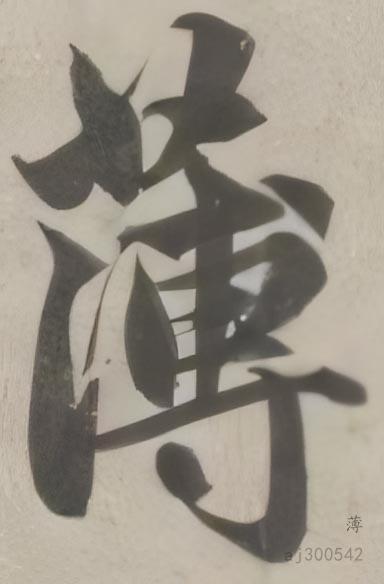 薄
薄
aj300542